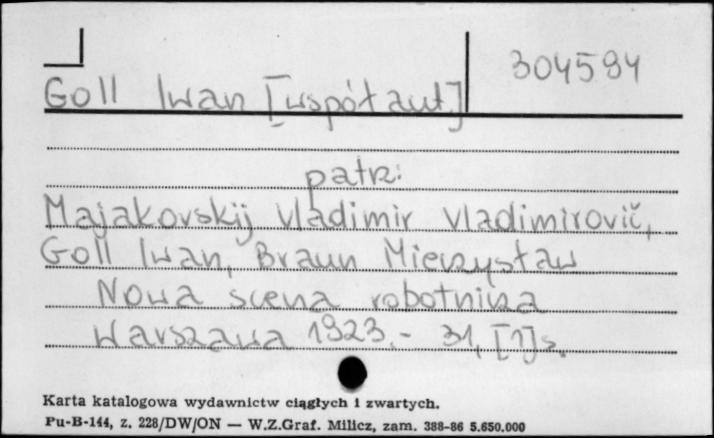 304594
Goll Iwan [współaut]
patrz:
Majakovskij Vladimir Vladimirovič,
Goll Iwan, Braun Mieczysław
Nowa scena robotnicza
Warszawa 1923.- 31, [1] s.
Karta katalogowa wydawnictw ciągłych i zwartych.
Pu-B-144, z. 228/DW/ON — W.Z.Graf. Milicz, zam. 388-86 5.650.000